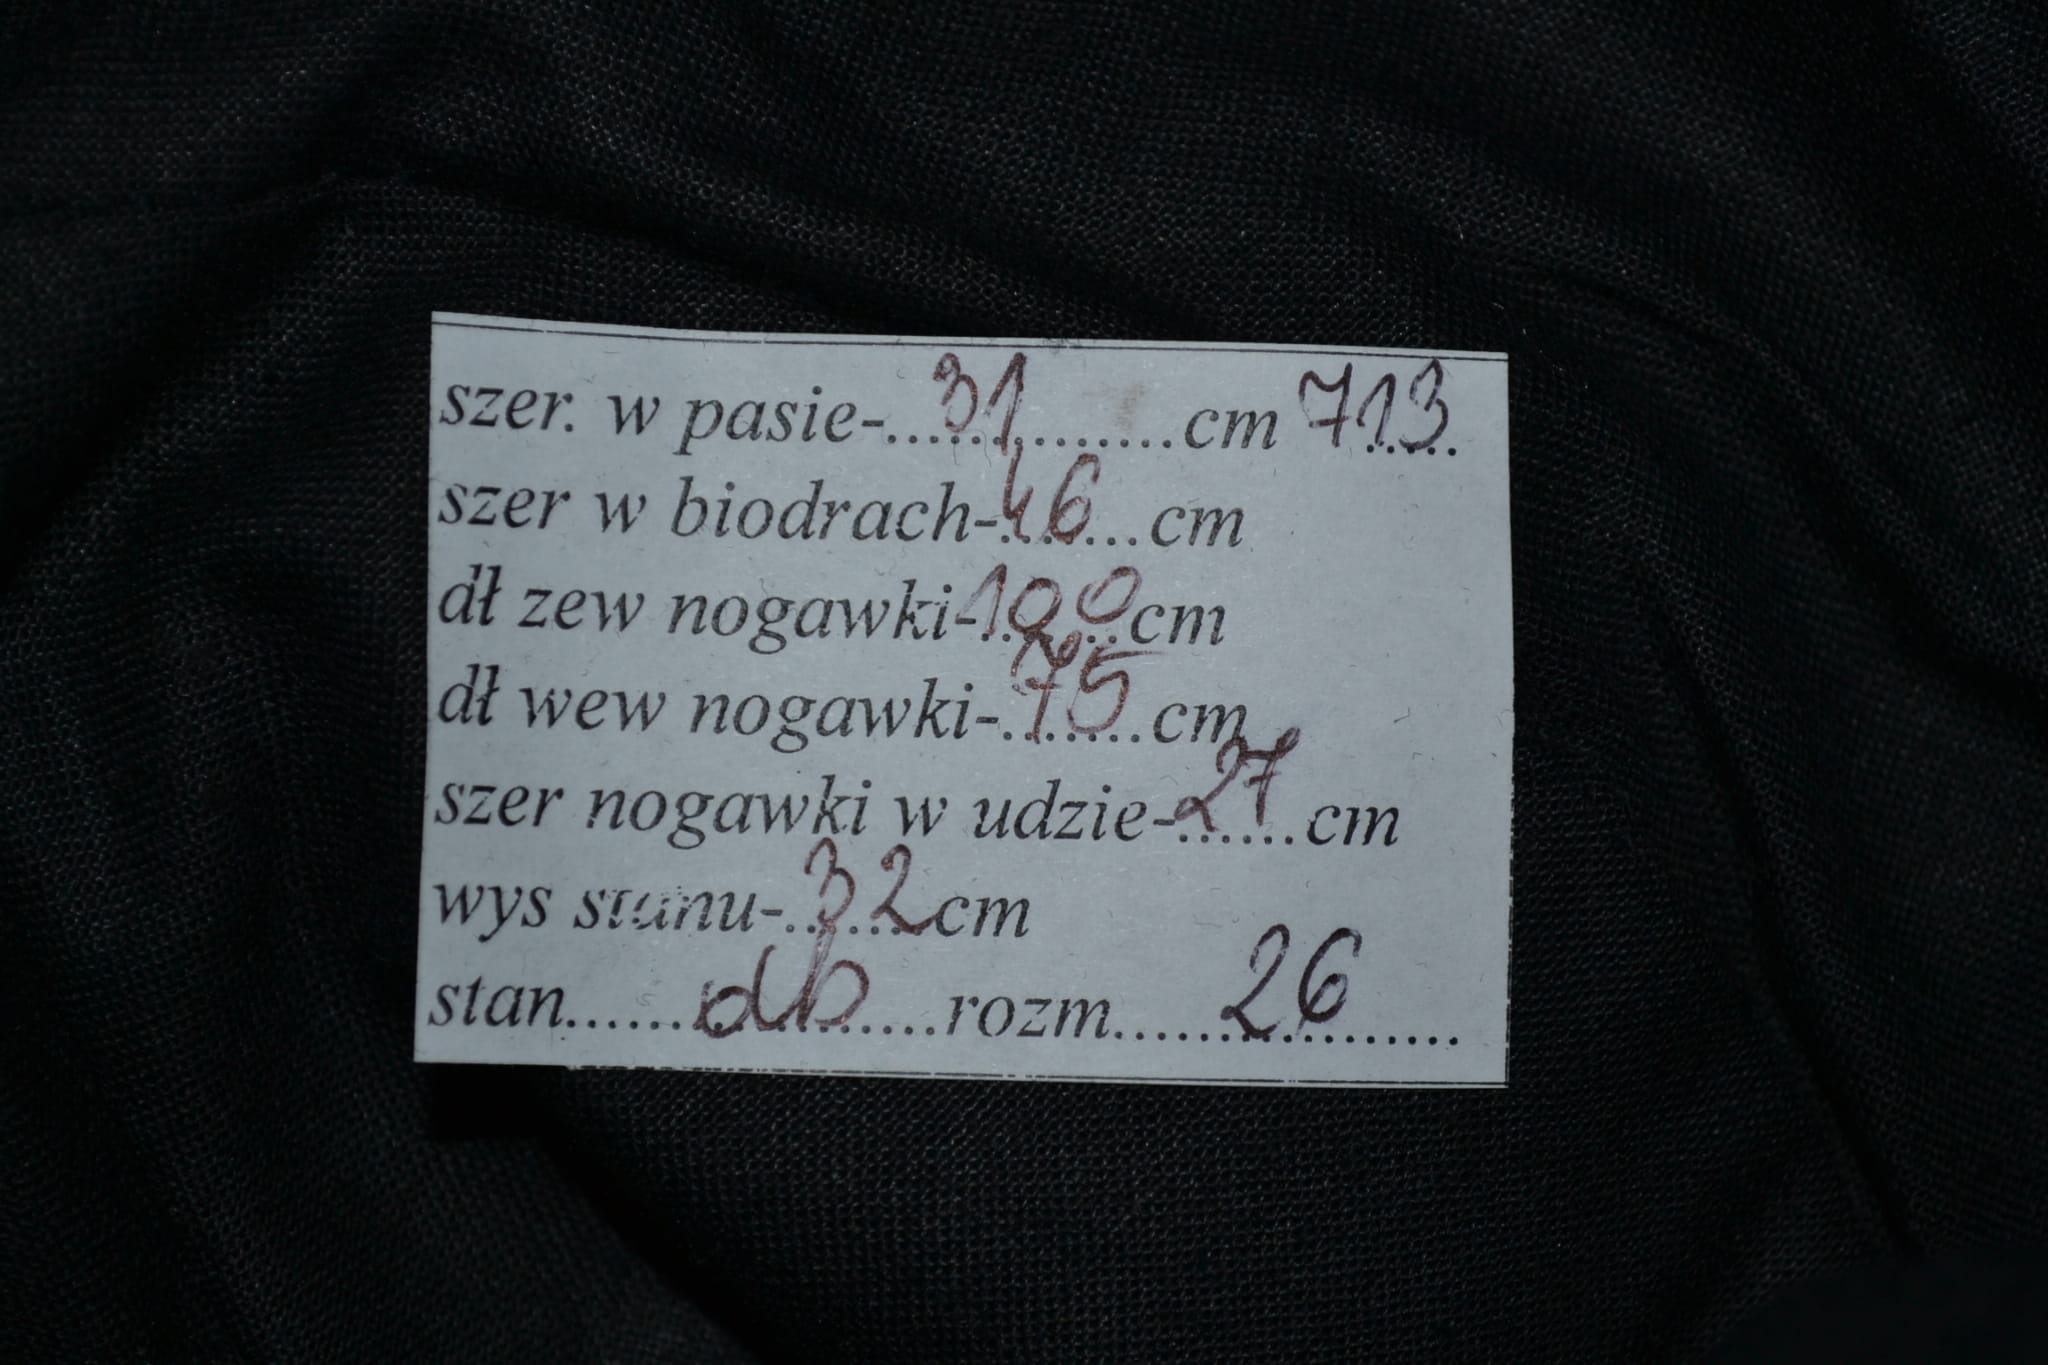 szer. w pasie-....31....cm 713
szer w biodrach-..46..cm
dł zew nogawki-100cm
dł wew nogawki-..75..cm
szer nogawki w udzie-27 cm
wys stanu-..32cm
stan......db......rozm......26......